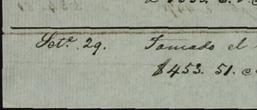 Set.e 29. Tomado el
$453. 51. c